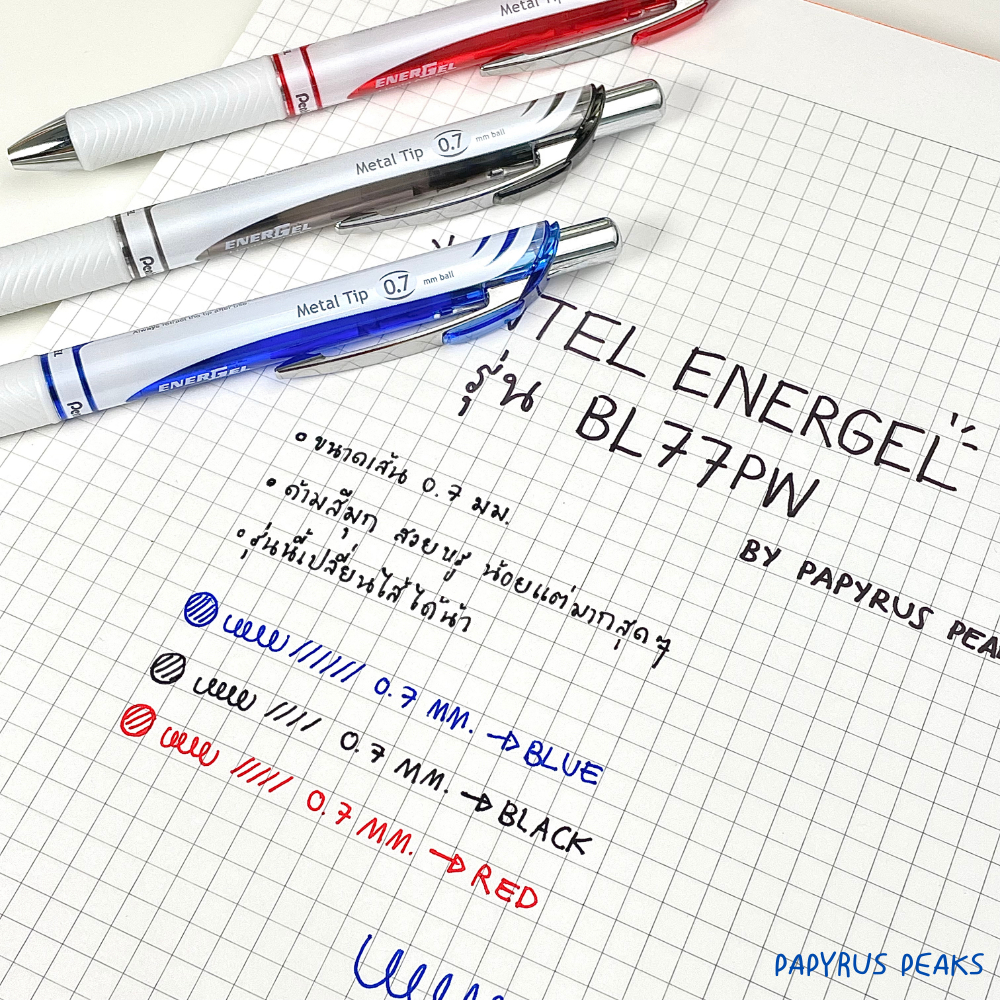 Metal Tip
ENERGEL
Metal Tip 0.7 mm ball
ENERGEL
Metal Tip 0.7 mm ball
Always retract the tip after use
ENERGEL
TEL ENERGEL
รุ่น BL77PW
BY PAPYRUS PEA
• ขนาดเส้น 0.7 มม.
• ด้ามสีมุก สวยหรู น้อยแต่มากสุดๆ
• รุ่นนี้เปลี่ยนไส้ได้น้า
0.7 MM. → BLUE
0.7 MM. → BLACK
0.7 MM. → RED
PAPYRUS PEAKS